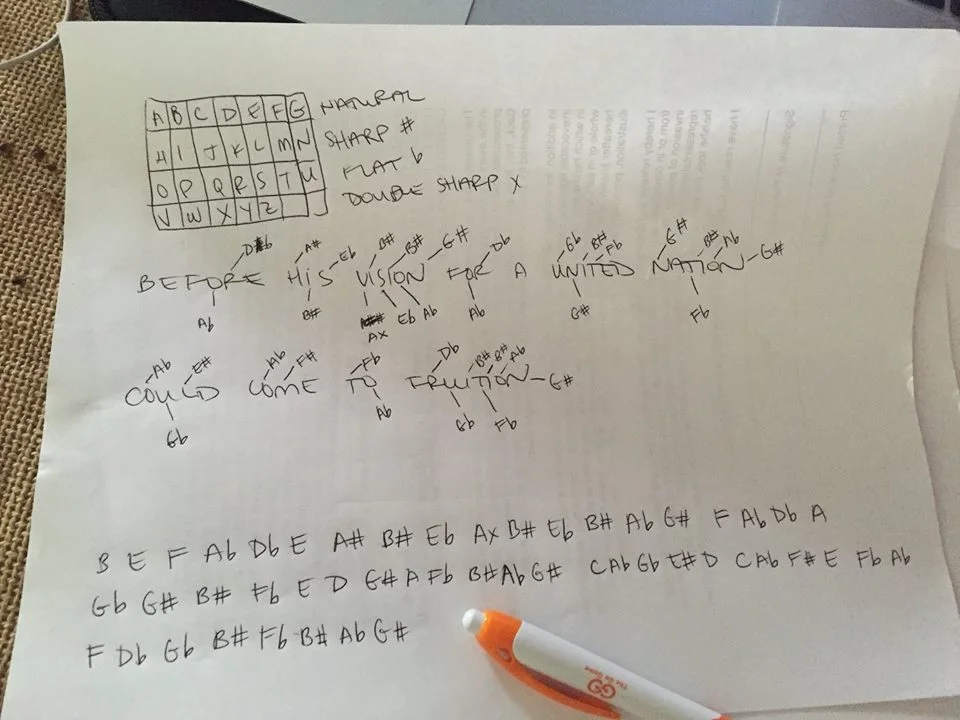 A B C D E F G NATURAL
H I J K L M N SHARP #
O P Q R S T U FLAT b
V W X Y Z DOUBLE SHARP X
Db A# Eb B# B# G# Db Gb B# Fb G# B# Ab
BEFORE HIS VISION FOR A UNITED NATION G#
Ab B# Ax Eb Ab Ab G# Fb
Ab E# Ab F# Fb Db B# B# Ab
COULD COME TO FRUITION G#
Gb Ab Gb Fb
B E F Ab Db E A# B# Eb Ax B# Eb B# Ab G# F Ab Db A
Gb G# B# Fb E D G# A Fb B# Ab G# C Ab Gb E# D C Ab F# E Fb Ab
F Db Gb B# Fb B# Ab G#
GO